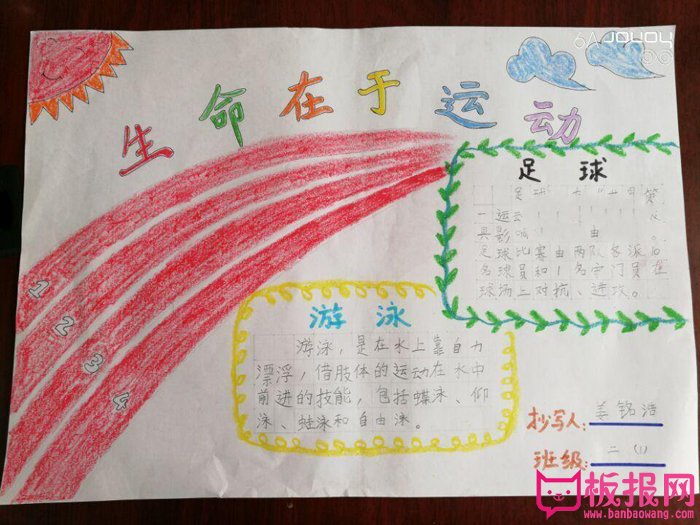 6A JOYOY
生命在于运动
足球
足球
一运
具影响 由
足球比赛由两队各派10
名球员和1名守门员在
球场上对抗、进攻。
1
2
3
4
游泳
游泳，是在水上靠自力
漂浮，借肢体的运动在水中
前进的技能，包括蝶泳、仰
泳、蛙泳和自由泳。
抄写人：姜铭浩
班级：二（1）
板报网
www.banbaowang.com